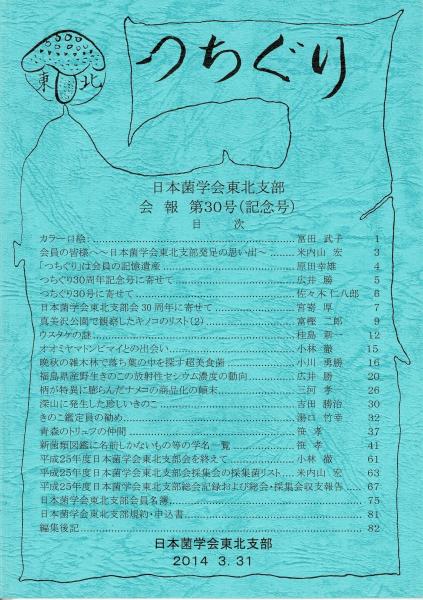 東北
つちぐり
日本菌学会東北支部
会 報 第30号(記念号)
目 次
カラー口絵: 富田 武子 1
会員の皆様へ~日本菌学会東北支部発足の思い出~ 米内山 宏 3
「つちぐり」は会員の記憶遺産 原田幸雄 4
つちぐり30周年記念号に寄せて 広井 勝 5
つちぐり30号に寄せて 佐々木 仁八郎 6
日本菌学会東北支部会30周年に寄せて 宮嵜 厚 7
真美沢公園で観察したキノコのリスト(2) 富樫 二郎 9
ウスタケの謎 桂島 新一 12
オオミヤマトンビマイとの出会い 小林 徹 15
晩秋の雑木林で落ち葉の中を探す超美食菌 小川 勇勝 16
福島県産野生きのこの放射性セシウム濃度の動向 広井 勝 20
柄が特異に膨らんだナメコの商品化の顛末 三河 孝 26
深山に発生した珍しいきのこ 吉田 勝治 30
きのこ鑑定員の勧め 湯口 竹幸 32
青森のトリュフの仲間 笹 孝 37
新菌類図鑑に名前しかないもの等の学名一覧 笹 孝 41
平成25年度日本菌学会東北支部会を終えて 小林 徹 61
平成25年度日本菌学会東北支部会採集会の採集菌リスト 米内山 宏 63
平成25年度日本菌学会東北支部総会記録および総会・採集会収支報告 67
日本菌学会東北支部会員名簿 75
日本菌学会東北支部規約・申込書 81
編集後記 82
日本菌学会東北支部
2014 3. 31